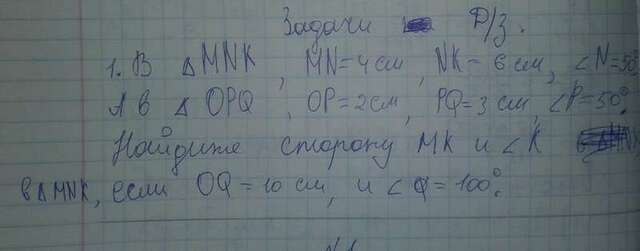 Задачи Д/З.
1. В △ MNK, MN=4см, NK=6см, ∠N=50°
А в △ OPQ, OP=2см, PQ=3см, ∠P=50°.
Найдите сторону MK и ∠K
в△MNK, если OQ=10 см, и ∠Q=100°.